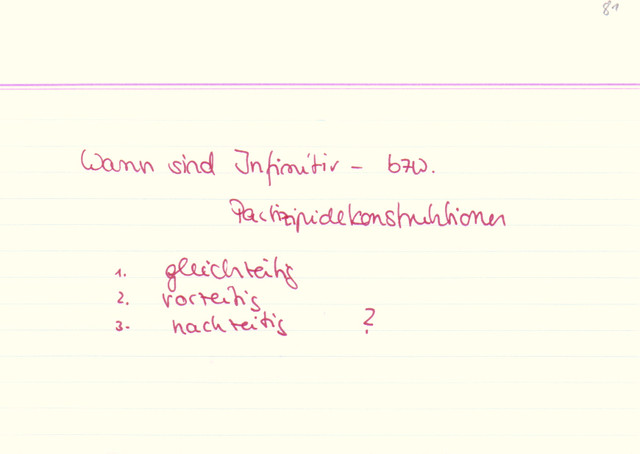 81
Wann sind Infinitiv- bzw.
Partizipidekonstruktionen
1. gleichzeitig
2. vorzeitig
3. nachzeitig ?